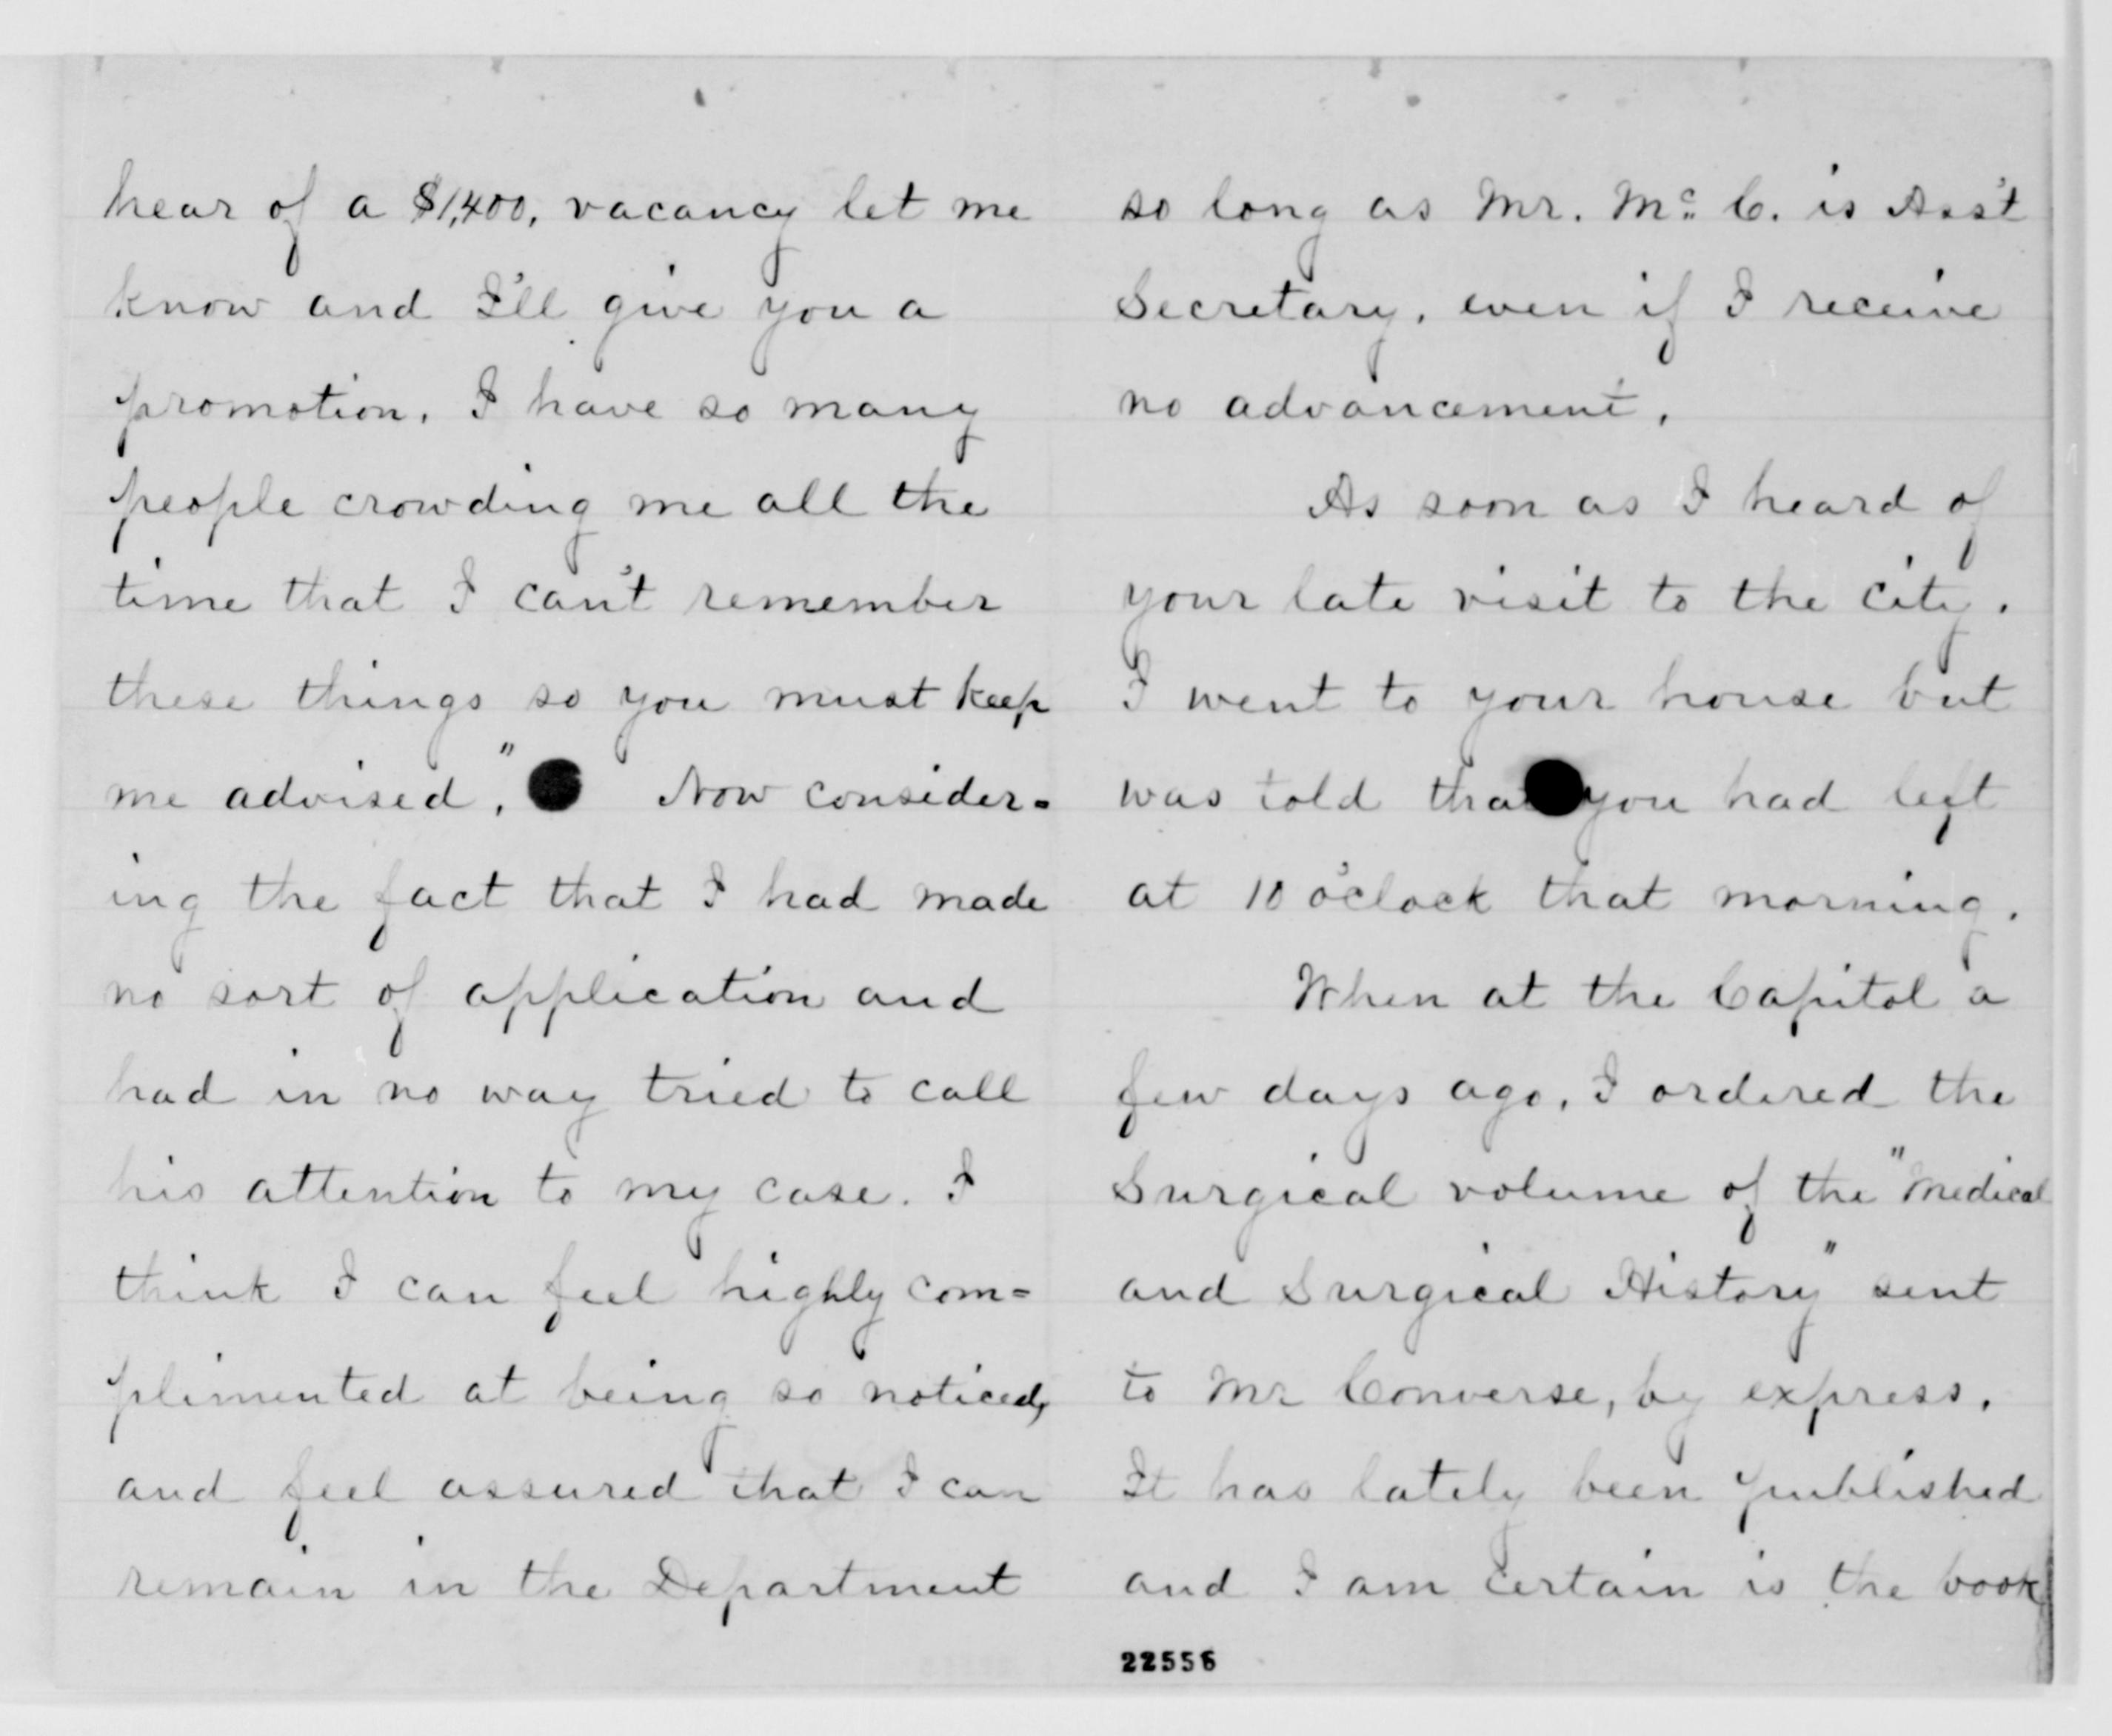 hear of a $1,400, vacancy let me
know and I'll give you a
promotion. I have so many
people crowding me all the
time that I can't remember
these things so you must keep
me advised." Now consider=
ing the fact that I had made
no sort of application and
had in no way tried to call
his attention to my case. I
think I can feel highly com=
plimented at being so noticed,
and feel assured that I can
remain in the Department
so long as Mr. Mc. C. is Ass't
Secretary, even if I receive
no advancement.
As soon as I heard of
your late visit to the city.
I went to your house but
was told that you had left
at 10 o'clock that morning.
When at the Capitol a
few days ago, I ordered the
Surgical volume of the "Medical
and Surgical History" sent
to Mr Converse, by express.
It has lately been published
and I am certain is the book
22556